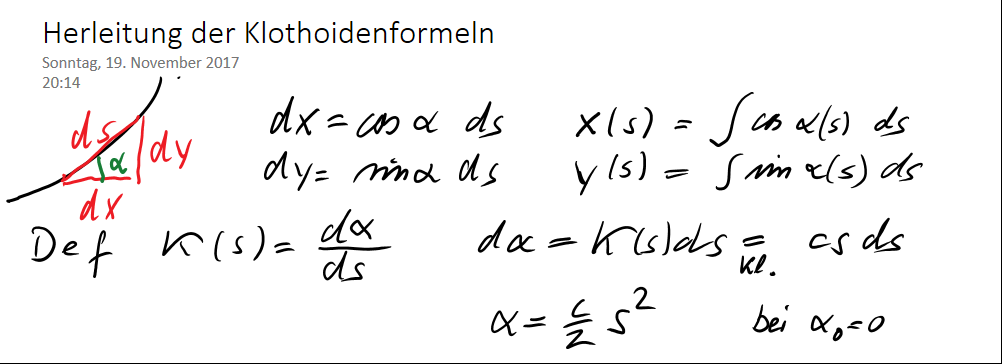 Herleitung der Klothoidenformeln
Sonntag, 19. November 2017
20:14
ds
α
dy
dx
dx = cos α ds x(s) = ∫ cos α(s) ds
dy = sin α ds y(s) = ∫ sin α(s) ds
Def κ(s) = dα/ds dα = κ(s)ds = cs ds
Kl.
α = c/2 s² bei α₀=0